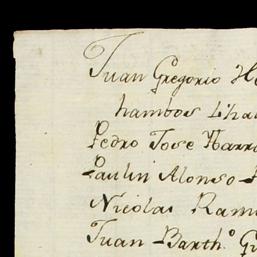 Juan Gregorio He
hambos
Pedro Jose Narra
Paulin Alonso
Nicolas Rami
Juan Barth.º G